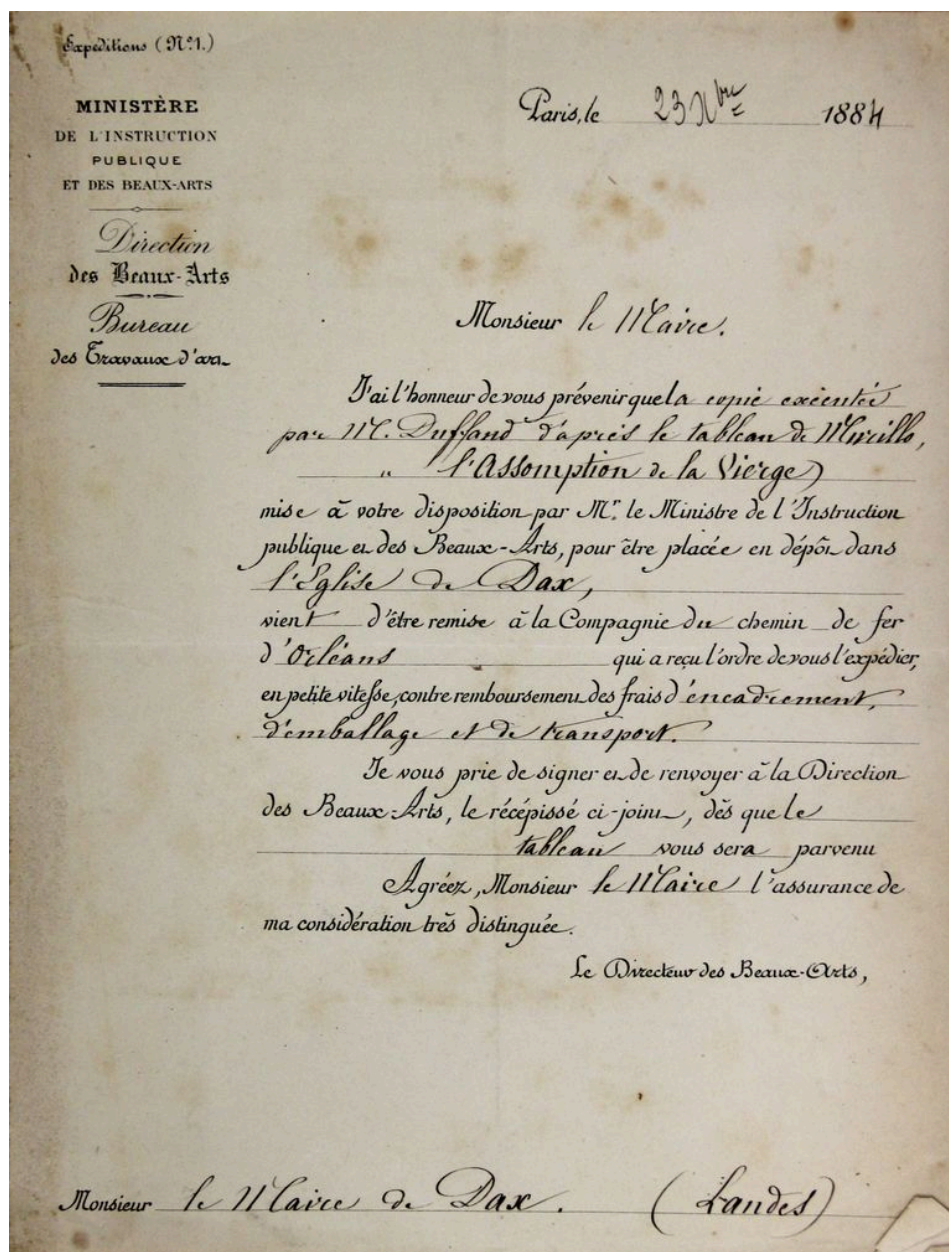 Expéditions (N°1.)
MINISTÈRE
DE L'INSTRUCTION
PUBLIQUE
ET DES BEAUX-ARTS
Direction
des Beaux-Arts
Bureau
des Travaux d'art
Paris, le 23 Xbre 1884
Monsieur le Maire.
J'ai l'honneur de vous prévenir que la copie exécutée
par M. Duffaud d'après le tableau de Murillo,
" l'Assomption de la Vierge)
mise à votre disposition par Mr. le Ministre de l'Instruction
publique et des Beaux-Arts, pour être placée en dépôt dans
l'Eglise de Dax,
vient d'être remise à la Compagnie du chemin de fer
d'Orléans qui a reçu l'ordre de vous l'expédier,
en petite vitesse, contre remboursement des frais d'encadrement,
d'emballage et de transport.
Je vous prie de signer et de renvoyer à la Direction
des Beaux-Arts, le récépissé ci-joint, dès que le
tableau vous sera parvenu
Agréez, Monsieur le Maire l'assurance de
ma considération très distinguée.
Le Directeur des Beaux-Arts,
Monsieur le Maire de Dax. (Landes)